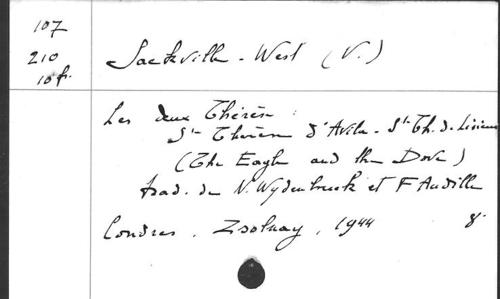 107
210
10 fr.
Sackville-West (V.)
Les deux Thérèse :
Ste Thérèse d'Avila - Ste Th. d. Lisieux
(The Eagle and the Dove)
trad. de N. Wydenbruck et F Audille
Londres, Zsolnay, 1944 8°